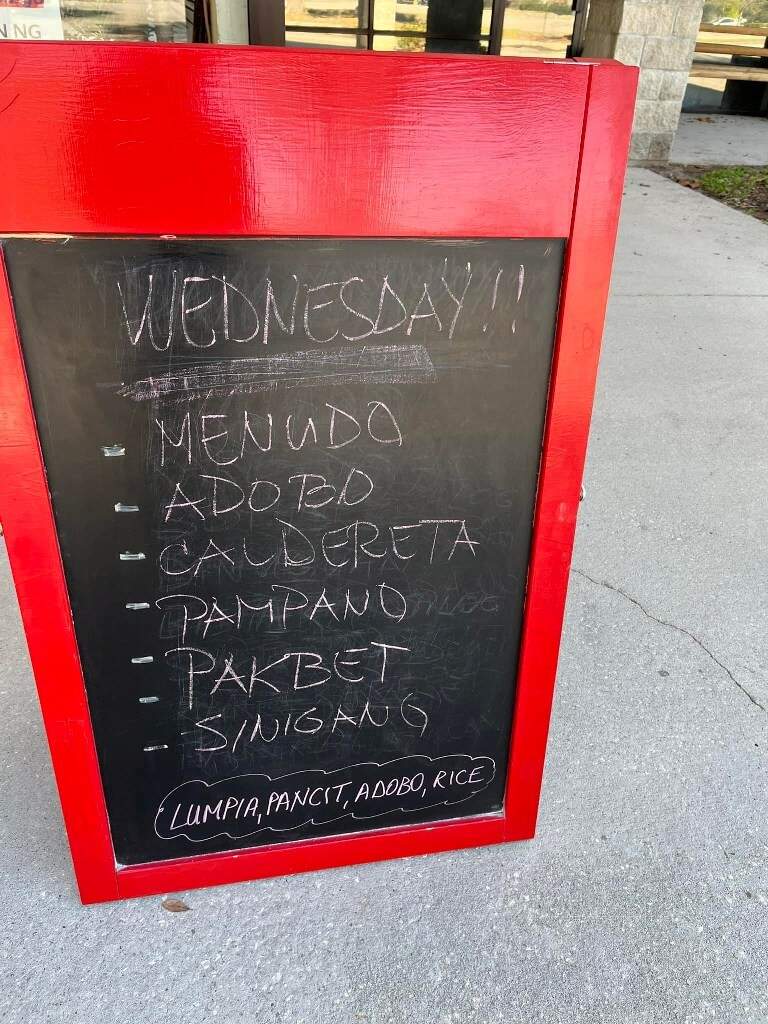 NG
WEDNESDAY!!
- MENUDO
- ADOBO
- CALDERETA
- PAMPANO
- PAKBET
- SINIGANG
LUMPIA, PANCIT, ADOBO, RICE